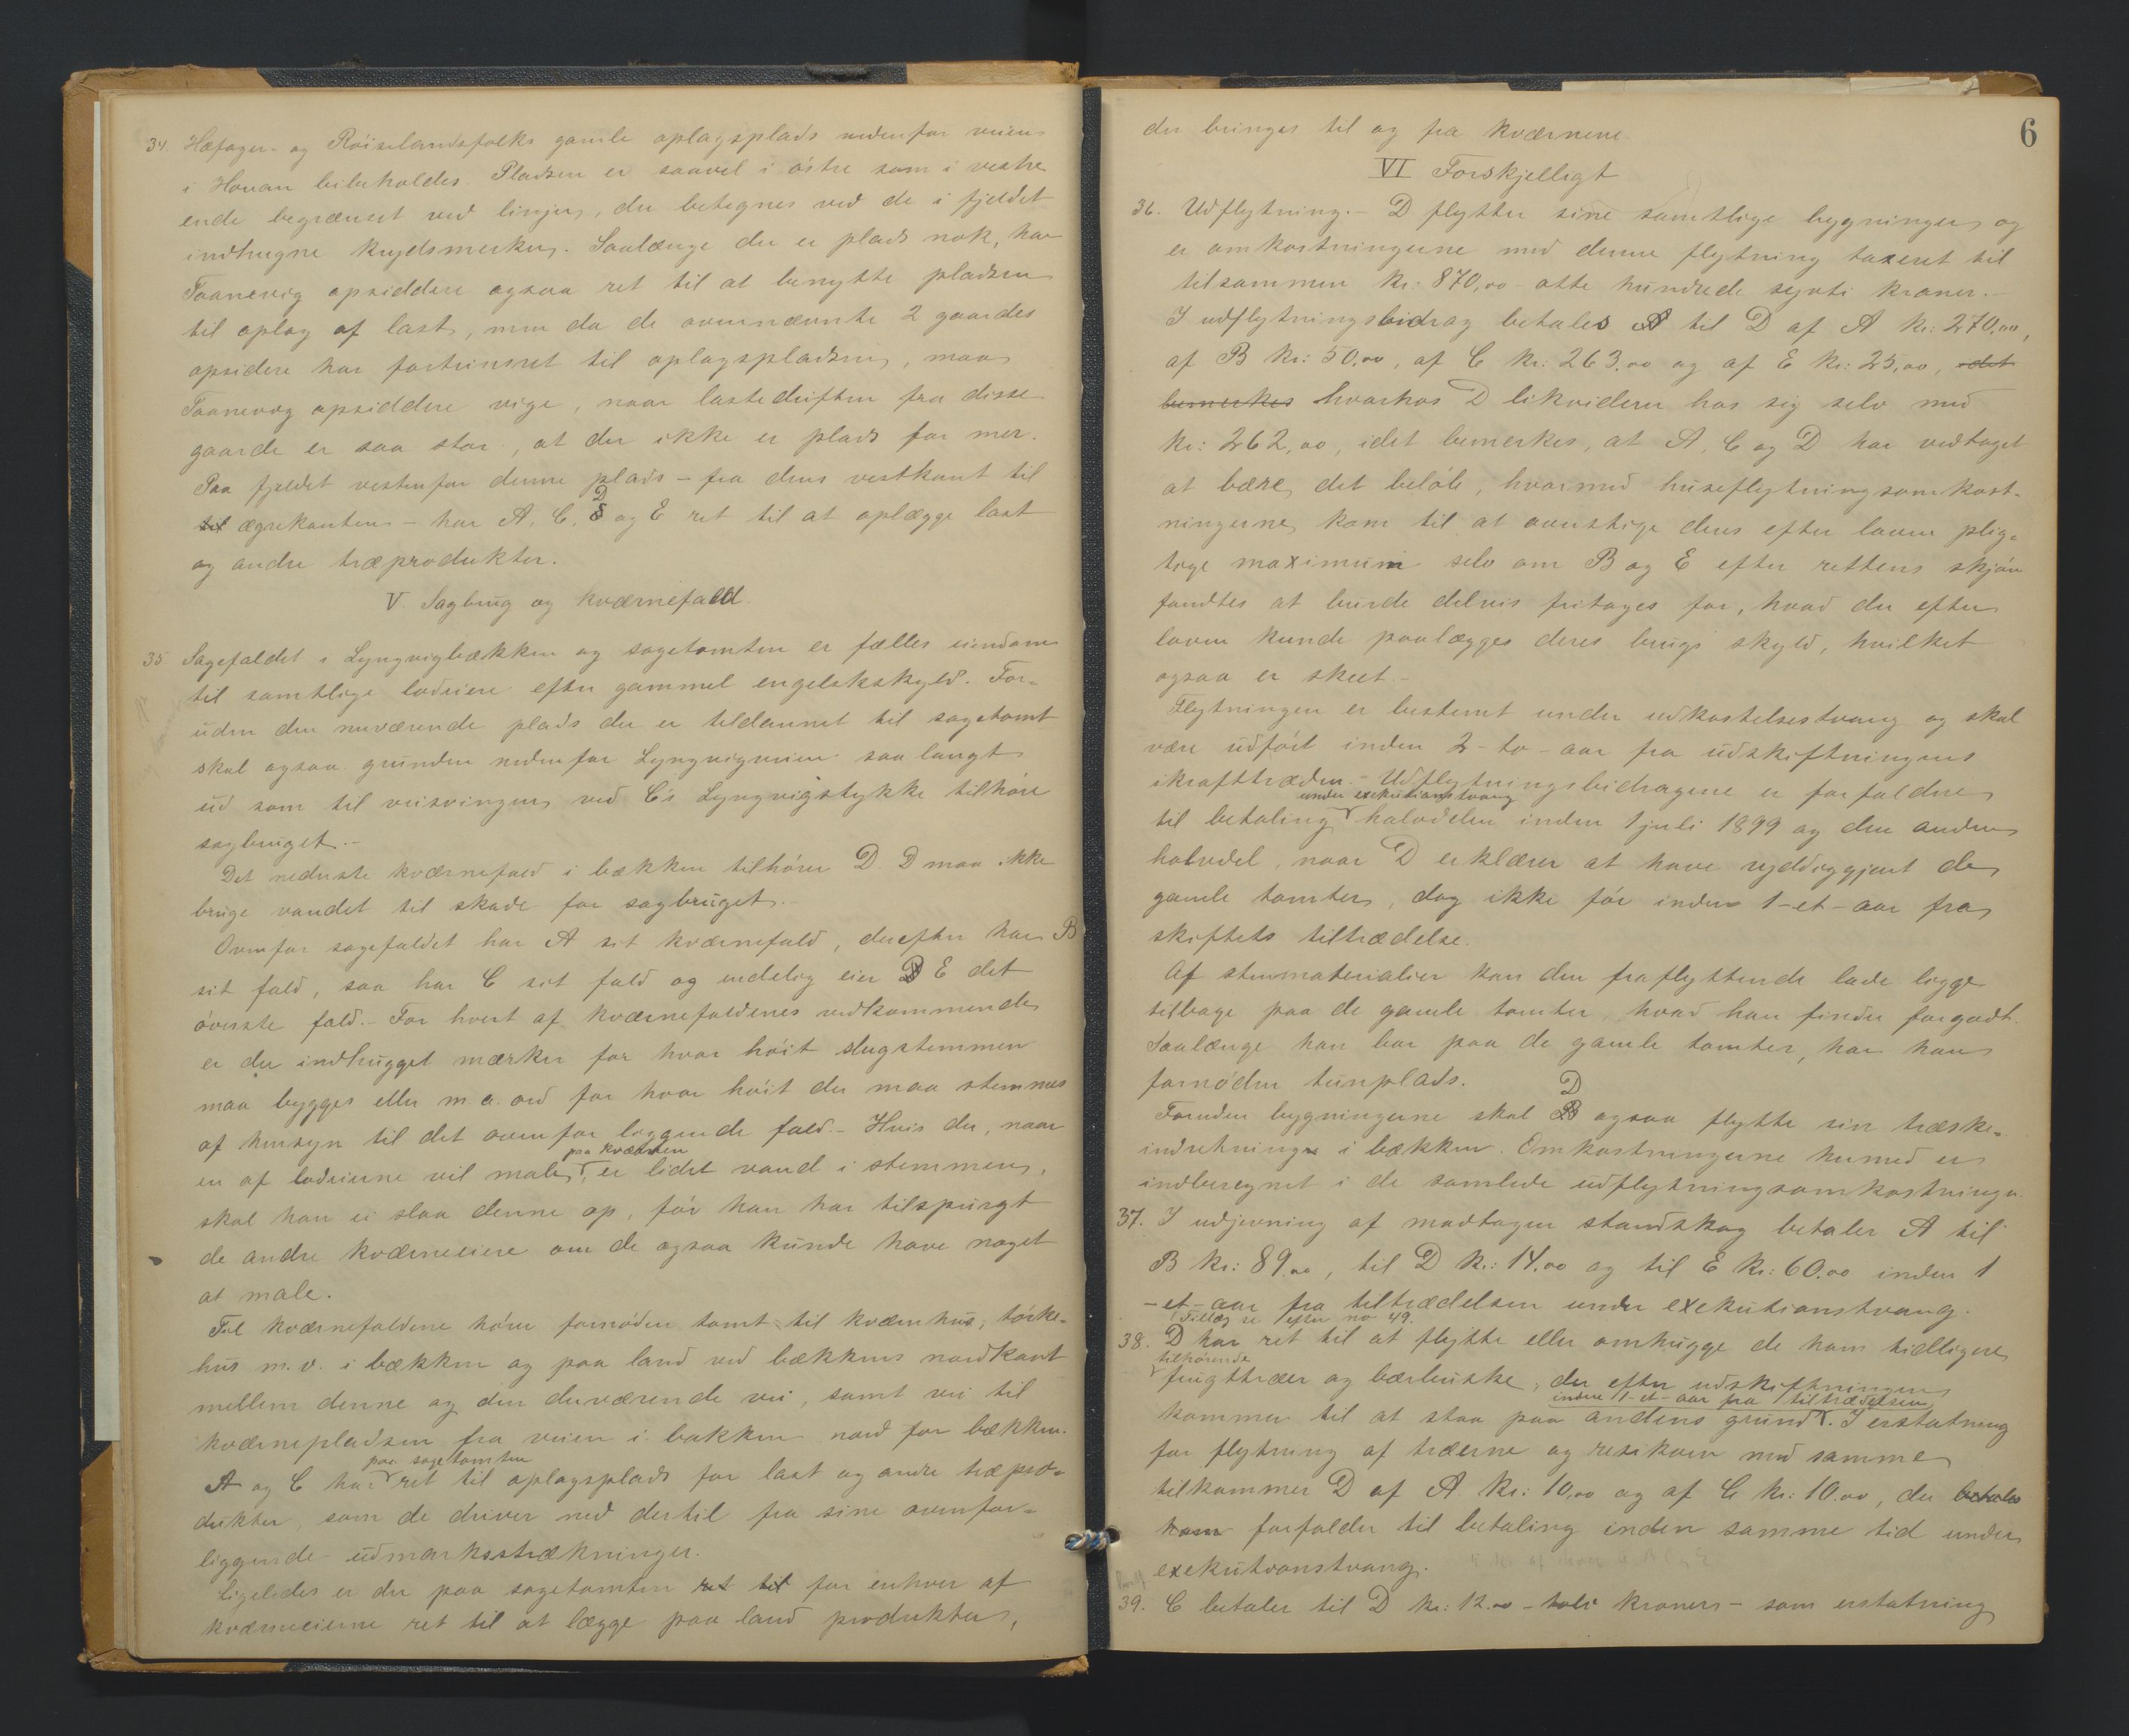 34. Hæfager- og Röiselandsfolks gamle oplagsplads nedenfor veien
i Houan bibeholdes. Pladsen er saavel i östre som i vestre
ende begrænset ved linjer, der betegnes ved de i fjeldet
indhugne krydsmerker. Saalænge der er plads nok, har
Taanevig opsiddere ogsaa ret til at benytte pladsen
til oplag af last, men da de ovennævnte 2 gaardes
opsidere har fortrinsret til oplagspladsen, maa
Taanevig opsiddere vige, naar lastedriften fra disse
gaarde er saa stor, at der ikke er plads for mer.
Paa fjeldet vestenfor denne plads - fra dens vestkant til
til ægrekanten - har A, C, D og E ret til at oplægge last
og andre træprodukter.
V. Sagbrug og kværnefald.
35 Sagefaldet i Lyngvigbækken og sagetomten er fælles eiendom
til samtlige lodeiere efter gammel engelskskyld. For-
uden den nuværende plads der er tildannet til sagetomt
skal ogsaa grunden nedenfor Lyngvigveien saa langt
ud som til veisvingen ved C's Lyngvigstykke tilhöre
sagbruget.-
Det nederste kværnefald i bækken tilhörer D. D maa ikke
bruge vandet til skade for sagbruget.-
Ovenfor sagefaldet har A sit kværnefald, derefter har B
sit fald, saa har C sit fald og endelig eier E det
överste fald.- For hvert af kværnefaldenes vedkommende
er der indhugget mærker for hvor höit slugstemmen
maa bygges eller m. a. ord for hvor höit der maa stemmes
af hensyn til det ovenfor liggende fald.- Hvis der, naar
paa kværnen
en af lodeierne vil male, er lidet vand i stemmen,
skal han ei slaa denne op, för han har tilspurgt
de andre kværneeiere om de ogsaa kunde have noget
at male.
Til kværnefaldene hörer fornöden tomt til kværnhus, törke-
hus m. v. i bækken og paa land ved bækkens nordkant
mellem denne og den derværende vei, samt vei til
kværnepladsen fra veien i bakken nord for bækken.
paa sagetomten
A og C har ret til oplagsplads for last og andre træpro-
dukter, som de driver ned dertil fra sine ovenfor-
liggende udmarksstrækninger.
Ligeledes er der paa sagetomten ret til for enhver af
kværneeierne ret til at lægge paa land produkter,
6
der bringes til og fra kværnene.
VI Forskjelligt
36. Udflytning.- D flytter sine samtlige bygninger og
er omkostningerne med denne flytning taxeret til
tilsammen kr: 870,00 - otte hundrede sytti kroner.-
I udflytningsbidrag betales til D af A kr: 270.00,
af B kr: 50.00, af C kr: 263.00 og af E kr: 25,00, idet
bemerkes hvorhos D likviderer hos sig selv med
kr: 262,00, idet bemerkes, at A, C og D har vedtaget
at bære det belöb, hvormed huseflytningsomkost-
ningerne kom til at overstige dens efter loven plig-
tige maximum selv om B og E efter rettens skjön
fandtes at burde delvis fritages for, hvad der efter
loven kunde paalægges deres brugs skyld, hvilket
ogsaa er skeet.-
Flytningen er bestemt under udkastelsestvang og skal
være udfört inden 2 - to - aar fra udskiftningens
ikrafttræden.- Udflytningsbidragene er forfaldne
under exekutionstvang
til betaling halvdelen inden 1 juli 1899 og den anden
halvdel, naar D erklærer at have ryddiggjort de
gamle tomter, dog ikke för inden 1 - et - aar fra
skiftets tiltrædelse.
Af stenmaterialier kan den fraflyttende lade ligge
tilbage paa de gamle tomter, hvad han finder forgodt.
Saalænge han bor paa de gamle tomter, har han
fornöden tunplads.
Foruden bygningerne skal D ogsaa flytte sin træske-
indretning i bækken. Omkostningerne hermed er
indberegnet i de samlede udflytningsomkostninger.
37. I udjevning af modtagen standskog betaler A til
B kr: 89.00, til D kr.: 14.00 og til E kr: 60.00 inden 1
- et - aar fra tiltrædelsen under exekutionstvang.
(Tillæg se efter no 49.
38. D har ret til at flytte eller omhugge de ham tidligere
tilhørende
frugttræer og bærbuske, der efter udskiftningen
inden 1 - et - aar fra tiltrædelsen
kommer til at staa paa andens grund. I erstatning
for flytning af træerne og resikoen med samme
tilkommer D af A kr: 10,00 og af C kr: 10.00, der betales
ham forfalder til betaling inden samme tid under
exekutionstvang.
39. C betaler til D kr: 12.00 - tolv kroner - som erstatning